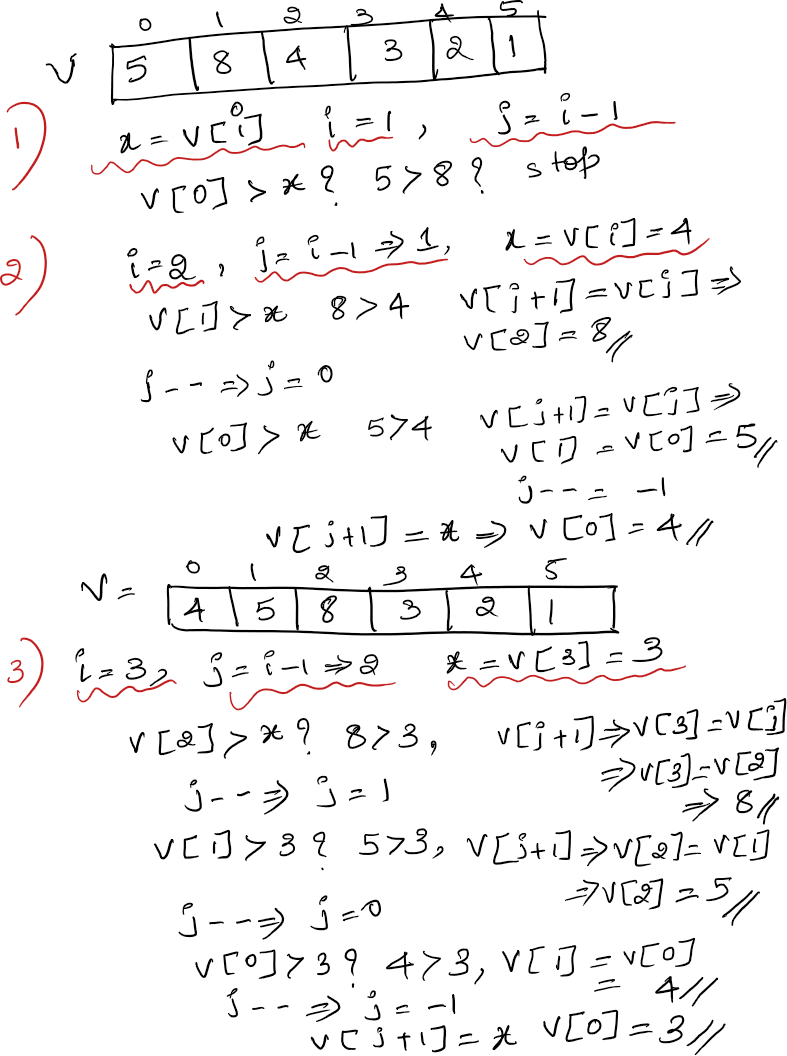 0 1 2 3 4 5
V 5 8 4 3 2 1
1) x = v[i] i=1, j = i-1
v[0] > x? 5>8? stop
2) i=2, j= i-1 ⇒ 1, x=v[i]=4
v[1]>x 8>4 v[j+1]=v[j] ⇒
v[2]=8//
j-- ⇒ j=0
v[0]> x 5>4 v[j+1]=v[j] ⇒
v[1] = v[0] = 5//
j-- = -1
v[j+1] = x ⇒ v[0] = 4//
0 1 2 3 4 5
V = 4 5 8 3 2 1
3) i=3, j=i-1 ⇒ 2 x=v[3]=3
v[2]> x? 8>3, v[j+1] ⇒ v[3]=v[j]
⇒ v[3]=v[2]
j-- ⇒ j=1 ⇒ 8//
v[1]>3? 5>3, v[j+1] ⇒ v[2]= v[1]
⇒ v[2] = 5//
j-- ⇒ j=0
v[0]>3? 4>3, v[1] = v[0]
= 4//
j-- ⇒ j=-1
v[j+1]=x v[0]=3//